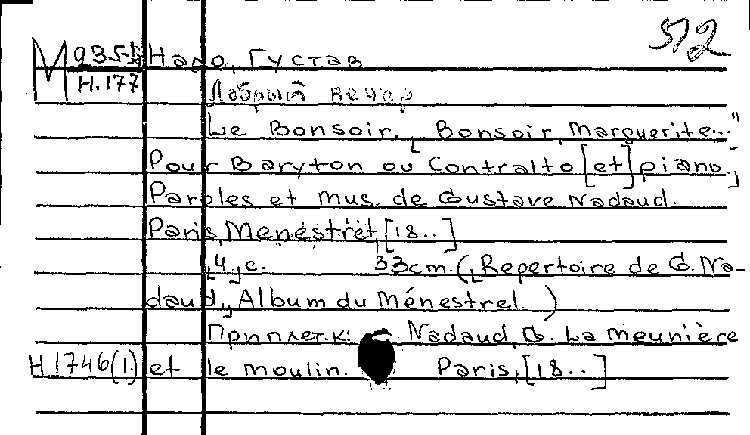 512
М 935-1 Надо, Густав
Н.177
Добрый вечер
Le Bonsoir. „Bonsoir, Marguerite..."
Pour Baryton ou Contralto [et] piano.
Paroles et mus. de Gustave Nadaud.
Paris, Menestrel, [18..]
„4„ с. 33см. („Repertoire de G. Na-
daud„ Album du Ménestrel.)
Приплет. к: Nadaud, G. La meunière
Н1746(1) et le moulin. Paris, [18..]